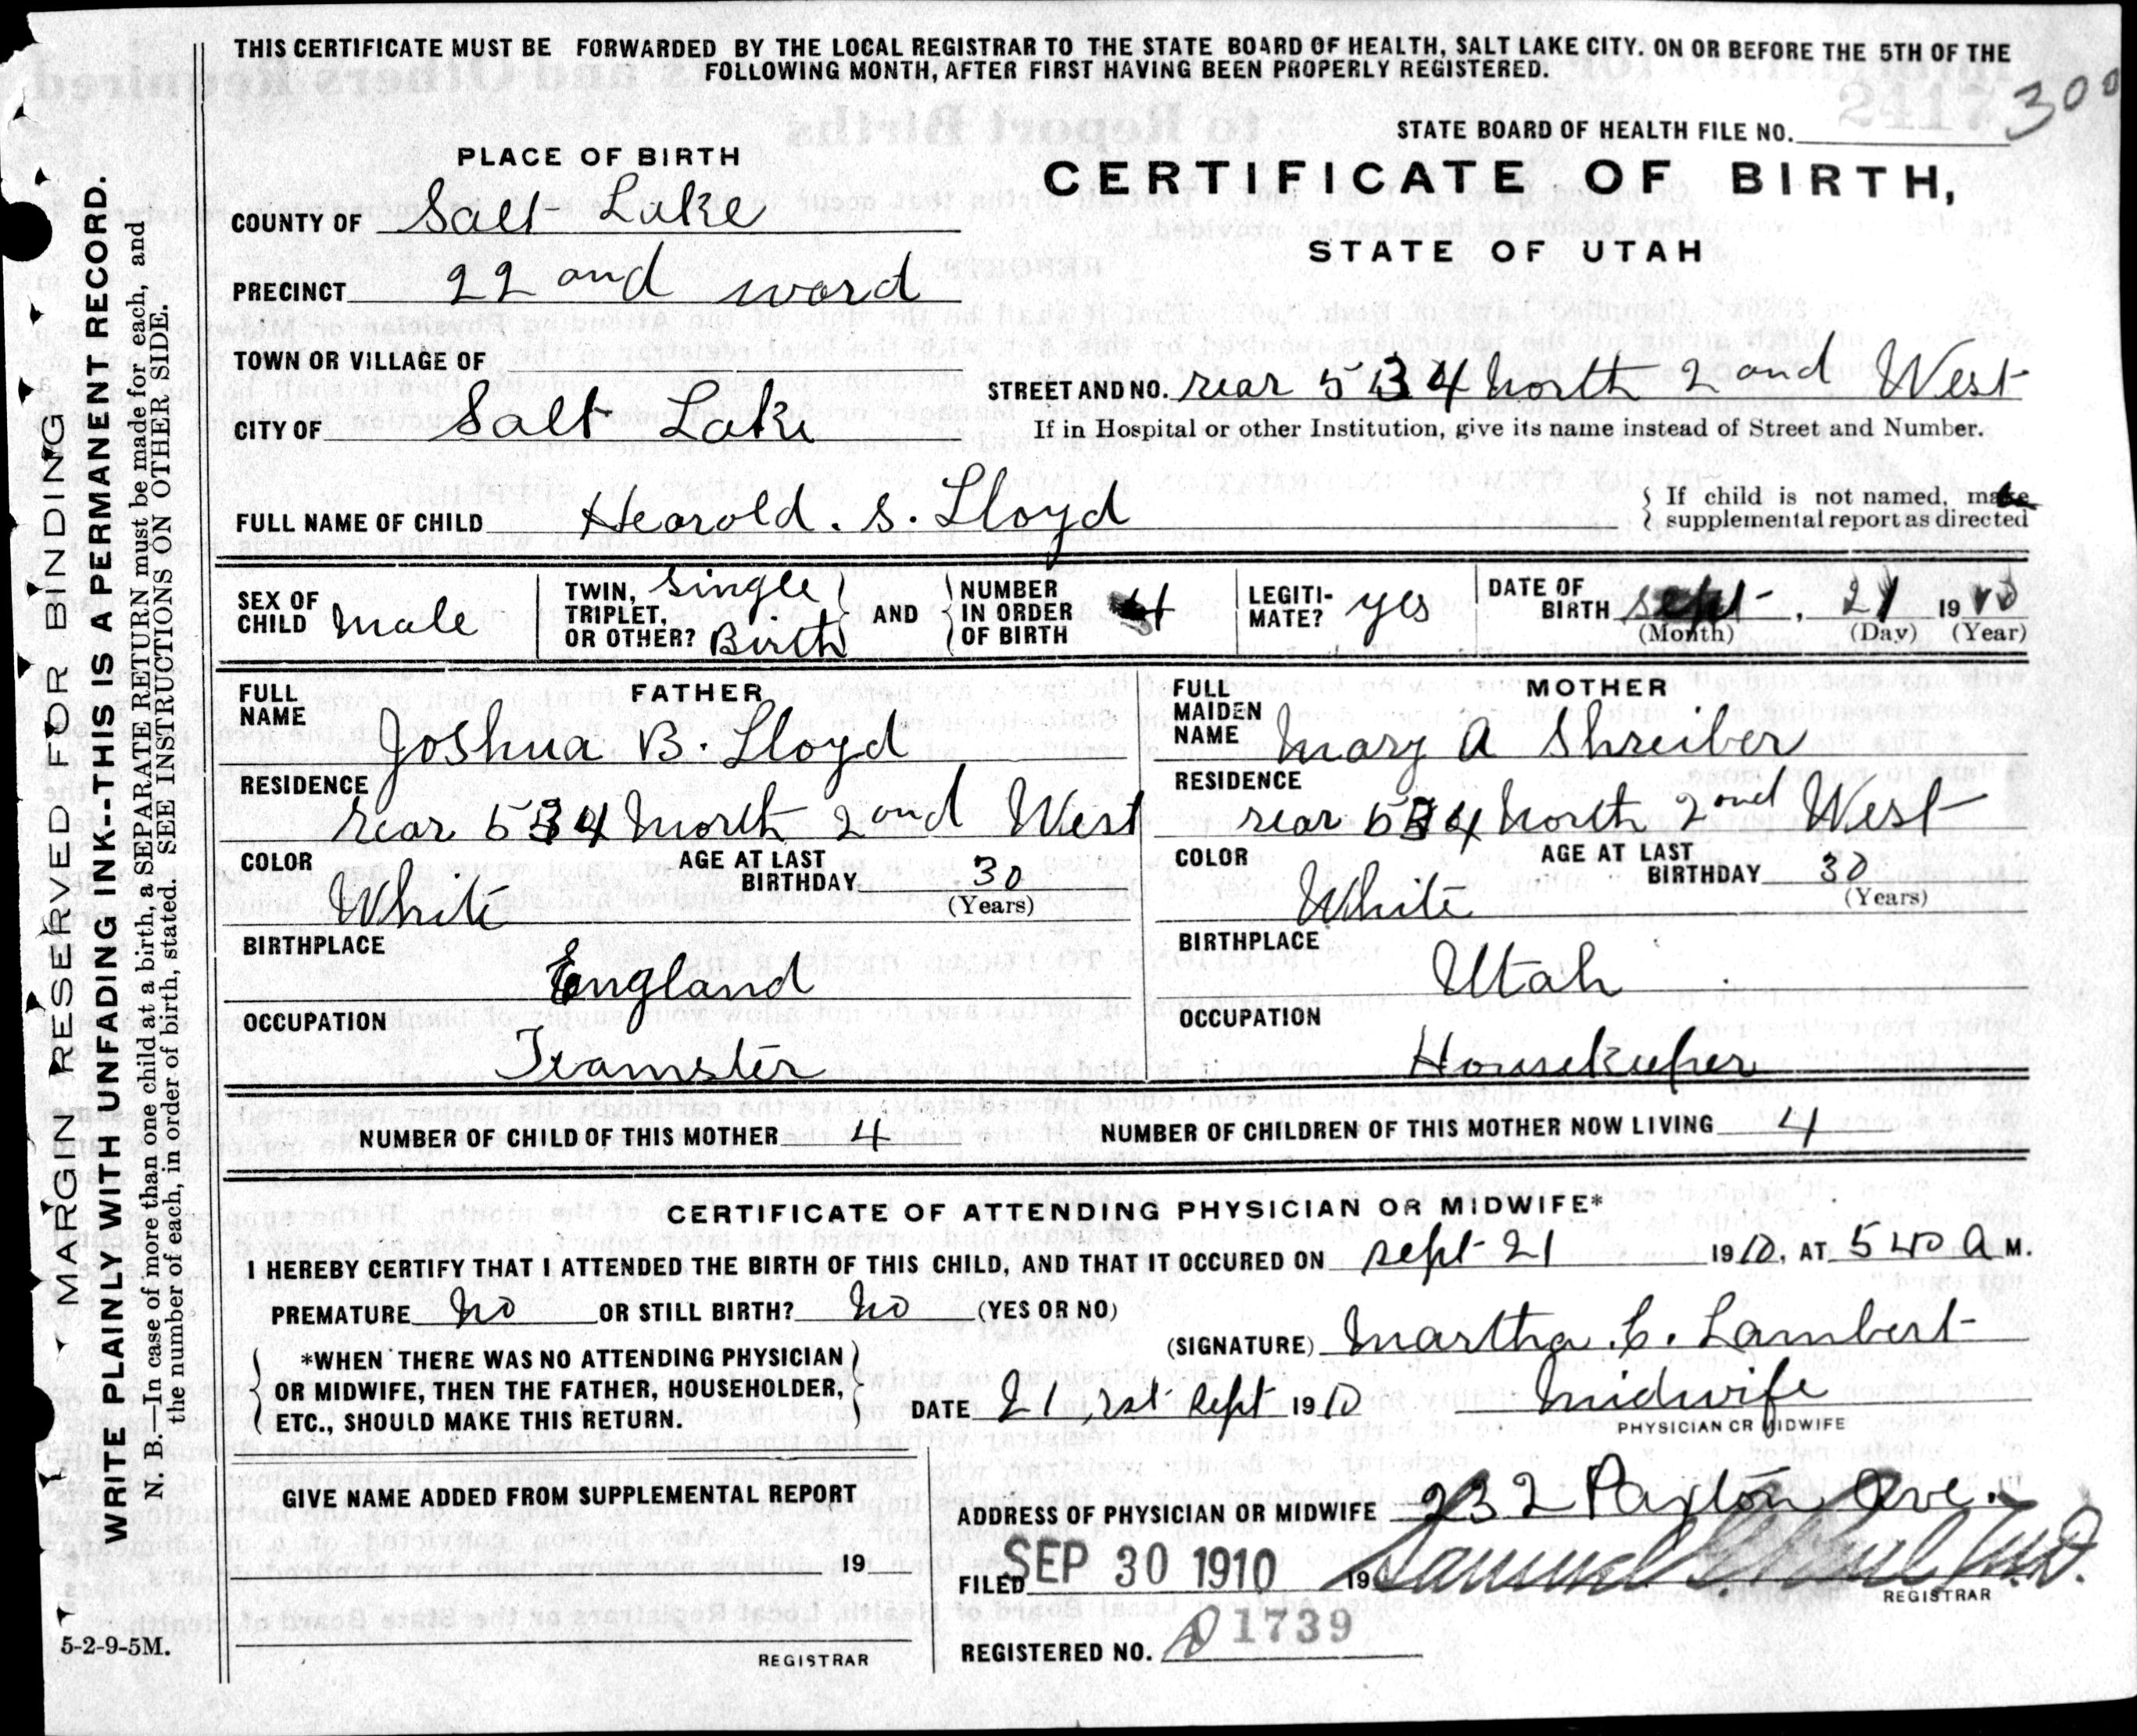 THIS CERTIFICATE MUST BE FORWARDED BY THE LOCAL REGISTRAR TO THE STATE BOARD OF HEALTH, SALT LAKE CITY. ON OR BEFORE THE 5TH OF THE
FOLLOWING MONTH, AFTER FIRST HAVING BEEN PROPERLY REGISTERED.
300
STATE BOARD OF HEALTH FILE NO.
PLACE OF BIRTH
CERTIFICATE OF BIRTH,
STATE OF UTAH
COUNTY OF Salt Lake
PRECINCT 22 and ward
TOWN OR VILLAGE OF
STREET AND NO. rear 534 North 2 and West
CITY OF Salt Lake
If in Hospital or other Institution, give its name instead of Street and Number.
FULL NAME OF CHILD Hearold. S. Lloyd
If child is not named, make
supplemental report as directed
SEX OF CHILD male
TWIN, TRIPLET, OR OTHER? Single Birth
AND
NUMBER IN ORDER OF BIRTH 4
LEGITI-MATE? yes
DATE OF BIRTH Sept, 21 1910
(Month) (Day) (Year)
FATHER
FULL NAME Joshua B. Lloyd
RESIDENCE
rear 534 North 2 and West
COLOR White
AGE AT LAST BIRTHDAY 30
(Years)
BIRTHPLACE
England
OCCUPATION
Teamster
MOTHER
FULL MAIDEN NAME Mary A Shreiber
RESIDENCE
rear 534 North 2 and West
COLOR White
AGE AT LAST BIRTHDAY 30
(Years)
BIRTHPLACE
Utah
OCCUPATION
Housekeeper
NUMBER OF CHILD OF THIS MOTHER 4 NUMBER OF CHILDREN OF THIS MOTHER NOW LIVING 4
CERTIFICATE OF ATTENDING PHYSICIAN OR MIDWIFE*
I HEREBY CERTIFY THAT I ATTENDED THE BIRTH OF THIS CHILD, AND THAT IT OCCURED ON Sept 21 1910, AT 5 40 A M.
PREMATURE No OR STILL BIRTH? No (YES OR NO)
(SIGNATURE) Martha. C. Lambert
*WHEN THERE WAS NO ATTENDING PHYSICIAN
OR MIDWIFE, THEN THE FATHER, HOUSEHOLDER,
ETC., SHOULD MAKE THIS RETURN.
DATE 21, Sept 1910 Midwife
PHYSICIAN OR MIDWIFE
GIVE NAME ADDED FROM SUPPLEMENTAL REPORT
19
REGISTRAR
ADDRESS OF PHYSICIAN OR MIDWIFE 232 Paxton Ave.
FILED SEP 30 1910 19 Samuel M.D.
REGISTRAR
REGISTERED NO. 1739
MARGIN RESERVED FOR BINDING
WRITE PLAINLY WITH UNFADING INK--THIS IS A PERMANENT RECORD.
N. B.—In case of more than one child at a birth, a SEPARATE RETURN must be made for each, and
the number of each, in order of birth, stated. SEE INSTRUCTIONS ON OTHER SIDE.
5-2-9-5M.